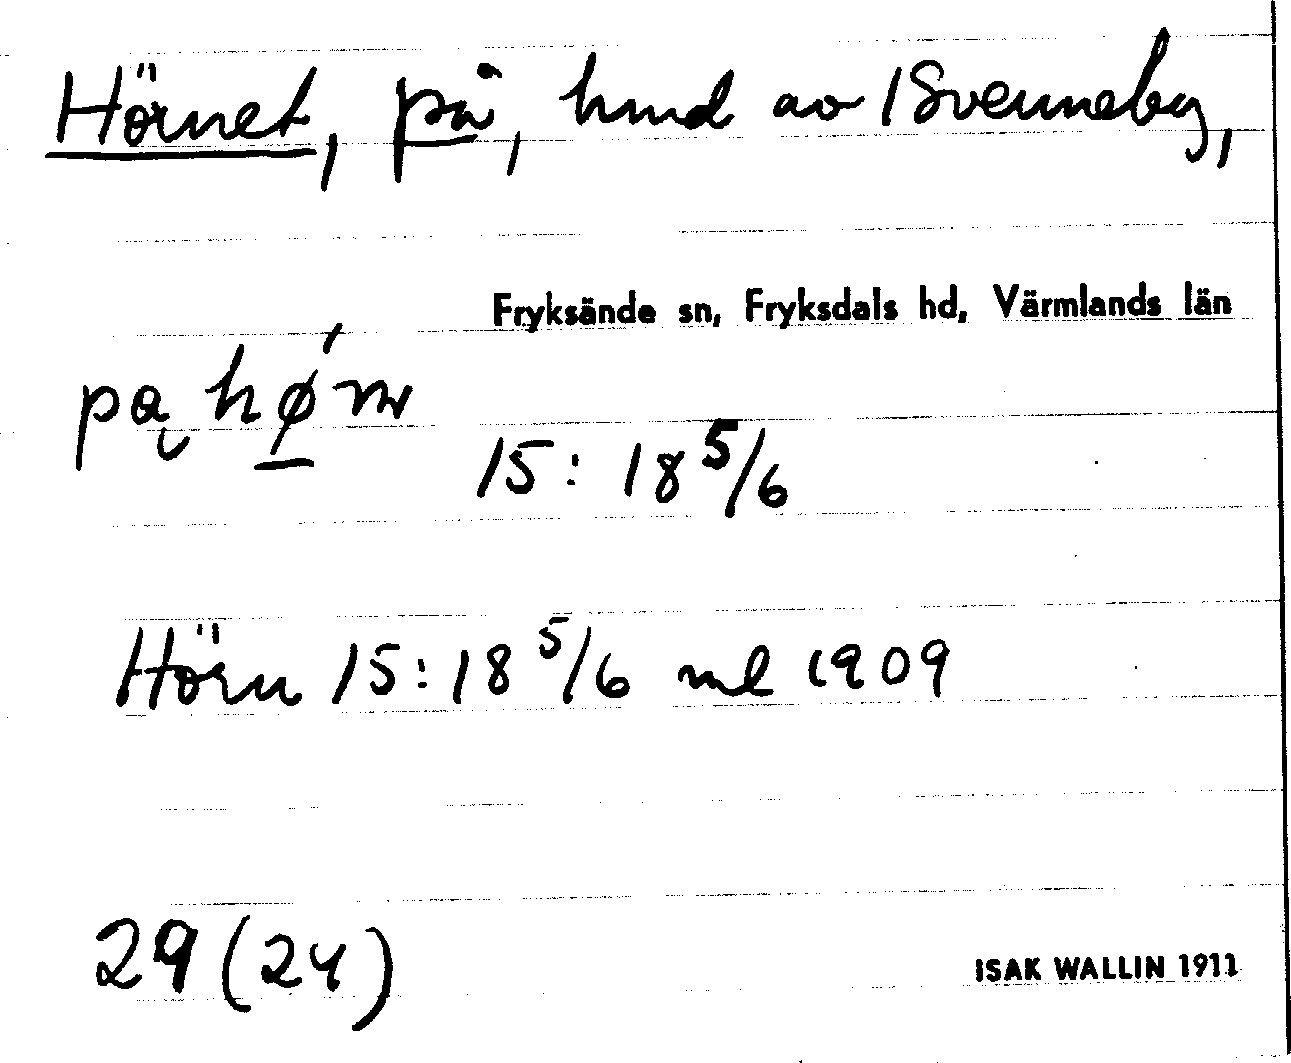 Hörnet, på, hmd av 15 Svenneby,
Fryksände sn, Fryksdals hd, Värmlands län
pą hǿ
15: 18 5/6
Hörn 15:18 5/6 ml 1909
29 (24)
ISAK WALLIN 1911